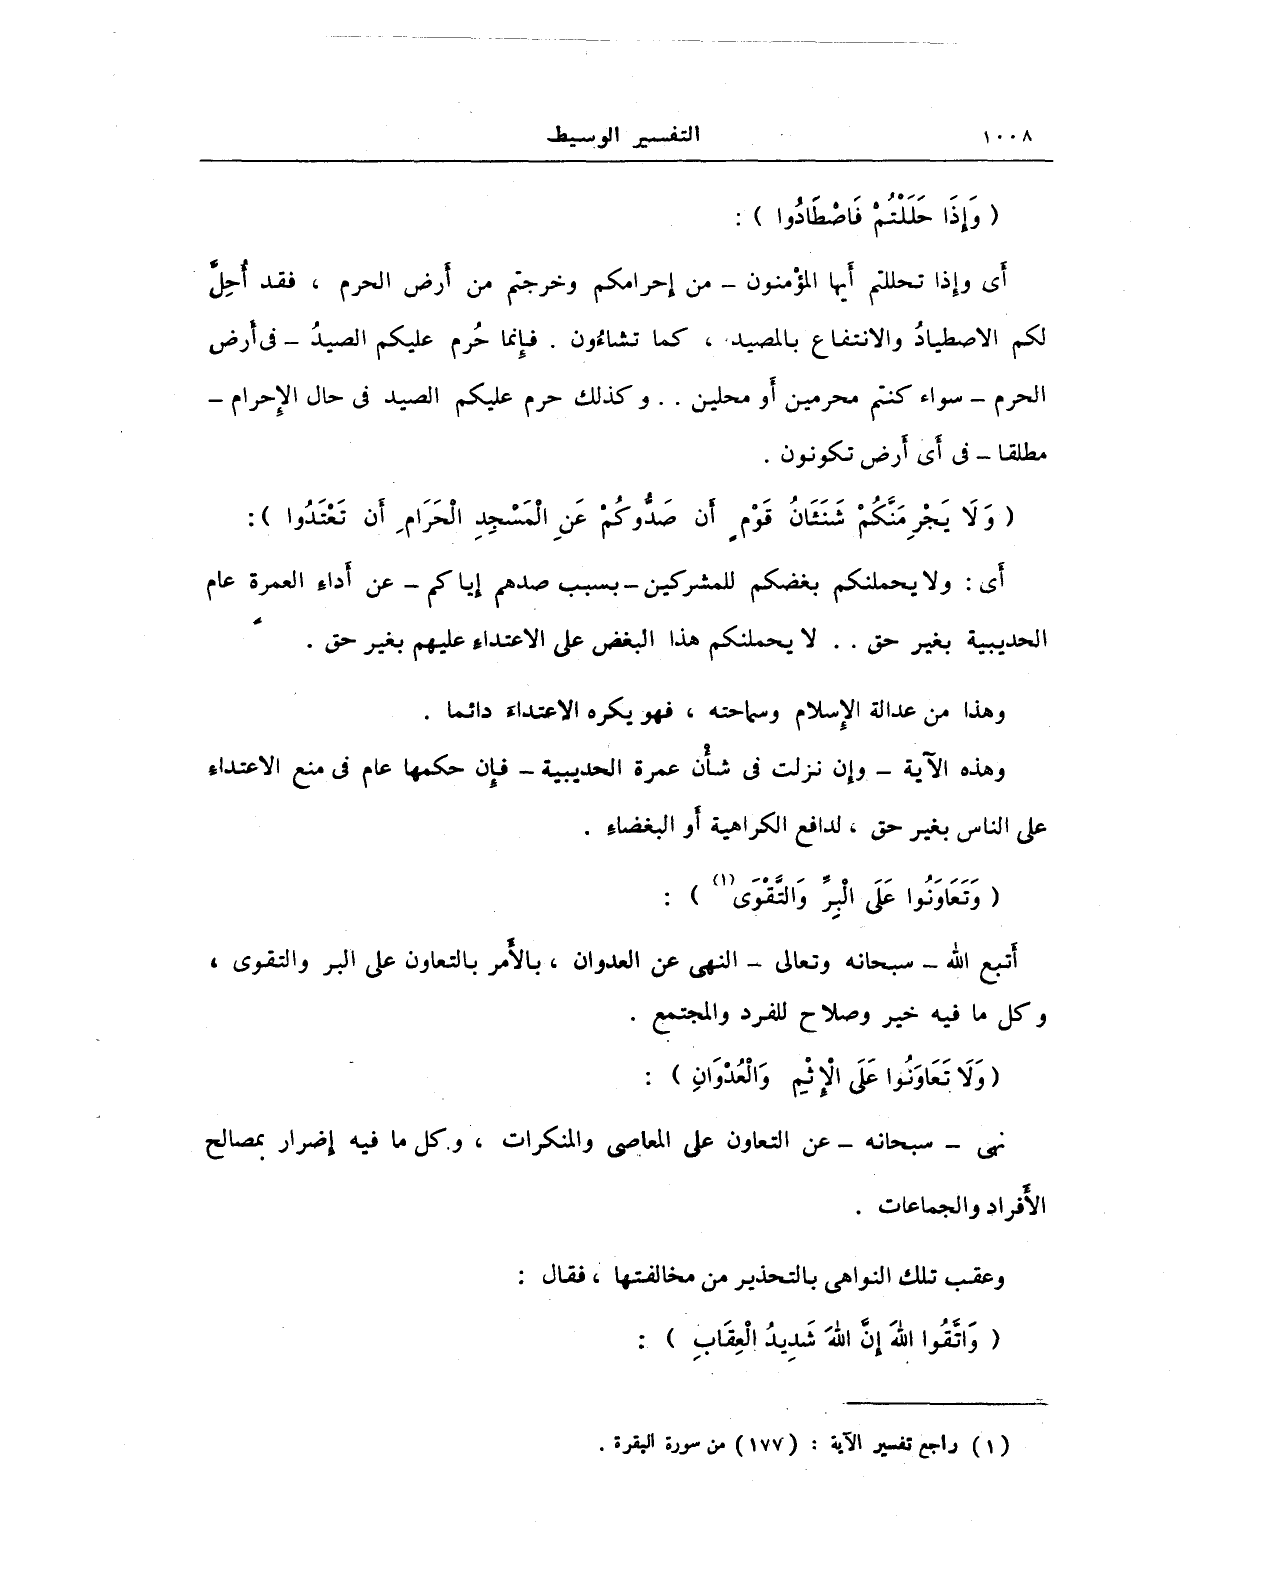 ١٠٠٨
التفسير الوسيط
( وَإِذَا حَلَلْتُمْ فَاصْطَادُوا ) :
أَى وإذا تحللتم أيها المؤمنون – من إحرامكم وخرجتم من أَرض الحرم ، فقد أُحِلَّ
لكم الاصطيادُ والانتفاع بالمصيد ، كما تشاءُون . فإنما حُرم عليكم الصيدُ – فى أَرض
الحرم – سواء كنتم محرمين أَو محلين . . وكذلك حرم عليكم الصيد فى حال الإحرام –
مطلقا – فى أَى أَرض تكونون .
( وَلَا يَجْرِمَنَّكُمْ شَنَئَانُ قَوْمٍ أَن صَدُّوكُمْ عَنِ الْمَسْجِدِ الْحَرَامِ أَن تَعْتَدُوا ) :
أَى : ولا يحملنكم بغضكم للمشركين – بسبب صدهم إياكم – عن أَداء العمرة عام
الحديبية بغير حق . . لا يحملنكم هذا البغض على الاعتداء عليهم بغير حق .
وهذا من عدالة الإسلام وسماحته ، فهو يكره الاعتداء دائما .
وهذه الآية – وإن نزلت فى شأْن عمرة الحديبية – فإن حكمها عام فى منع الاعتداء
على الناس بغير حق ، لدافع الكراهية أَو البغضاء .
( وَتَعَاوَنُوا عَلَى الْبِرِّ وَالتَّقْوَى(١) ) :
أَتبع الله – سبحانه وتعالى – النهى عن العدوان ، بالأَمر بالتعاون على البر والتقوى ،
وكل ما فيه خير وصلاح للفرد والمجتمع .
( وَلَا تَعَاوَنُوا عَلَى الْإِثْمِ وَالْعُدْوَانِ ) :
نهى – سبحانه – عن التعاون على المعاصى والمنكرات ، وكل ما فيه إضرار بمصالح
الأَفراد والجماعات .
وعقب تلك النواهى بالتحذير من مخالفتها ، فقال :
( وَاتَّقُوا اللهَ إِنَّ اللهَ شَدِيدُ الْعِقَابِ ) :
(١) راجع تفسير الآية : (١٧٧) من سورة البقرة .